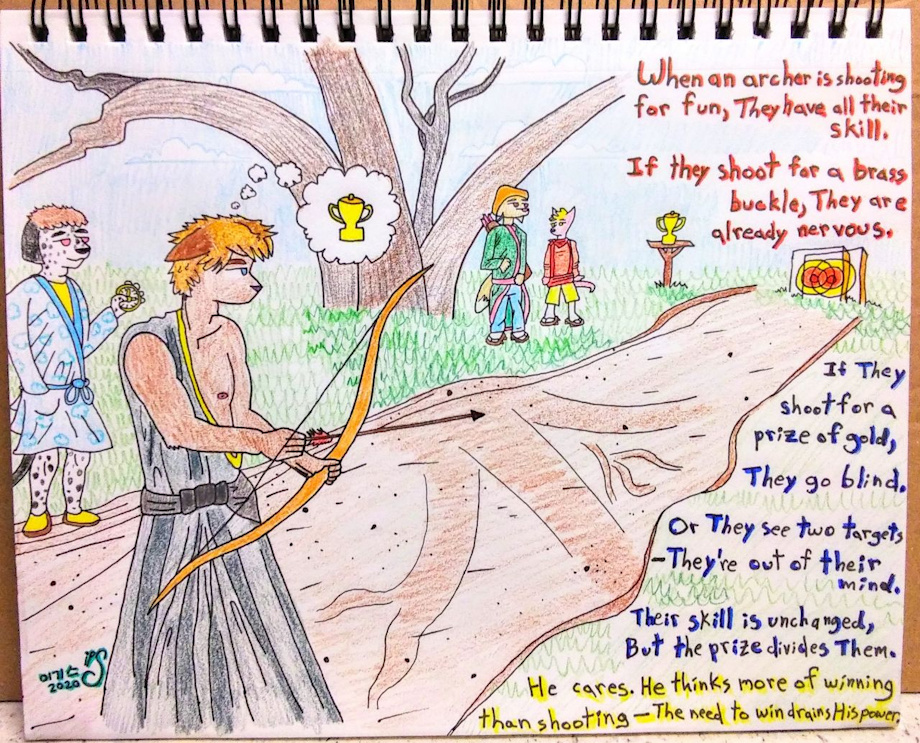 When an archer is shooting
for fun, They have all their
skill.
If they shoot for a brass
buckle, They are
already nervous.
If They
shoot for a
prize of gold,
They go blind.
Or They see two targets
-They're out of their
mind.
Their skill is unchanged,
But the prize divides Them.
He cares. He thinks more of winning
than shooting - The need to win drains His power.
이기스
2020